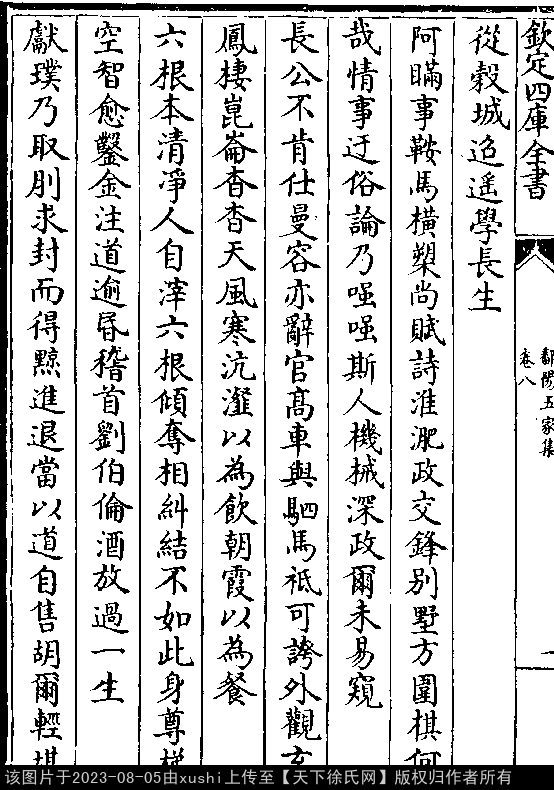 欽定四庫全書
鄱陽五家集
卷八
從穀城迢遥學長生
阿瞞事鞍馬橫槊尚賦詩淮淝政交鋒別墅方圍棋何
哉情事迂俗論乃嗤嗤斯人機械深政爾未易窺
長公不肯仕曼容亦辭官高車與駟馬祗可誇外觀玄
鳳棲崑崙杳杳天風寒沆瀣以為飲朝霞以為餐
六根本清淨人自滓六根傾奪相糾結不如此身尊梯
空智愈鑿金注道逾昬稽首劉伯倫酒放過一生
獻璞乃取刖求封而得黥進退當以道自售胡爾輕堪
该图片于2023-08-05由xushi上传至【天下徐氏网】版权归作者所有